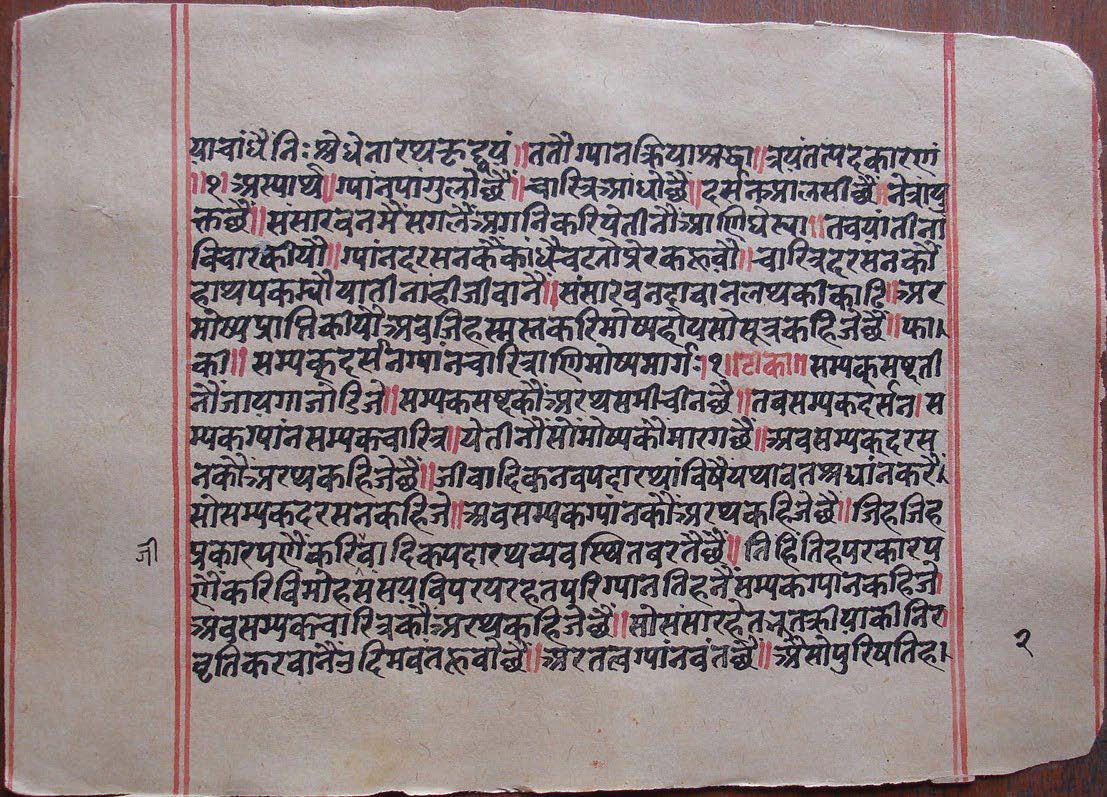 याचांधैनिःश्रेधेनारथ्यकृद्रूपं॥ततौग्यानक्रियाश्रद्धा॥त्रयंतत्पदकारणं
॥१॥अस्यार्थ॥ग्यांनपांगुलोछै॥चारित्रिआंधोछै॥दर्सनआलसीछै॥नेत्रायु
क्तछै॥संसारवनमैंसगलैंअगनिकरियेतीनौआणिघेस्या॥तवयांतीनां
विचारकीयौ॥ग्यांनदरसनकैकांधैचटतोप्रेरकहूवौ॥चारित्रदरसनकौ
हाथपकम्यौयातीनांहीजीवानै॥संसारवनदावानलथकीकाढि॥अर
मोष्यप्राप्तिकीयौंअवजिहस्मस्तकरिमोष्यहोयसोसूत्रकहिजेछै॥फा।
की॥सम्यक्दर्सनग्यांनचारित्राणिमोष्यमार्गः।१॥टीका॥सम्यक्सष्दती
नौंजायगाजोडिजे॥सम्यकसष्दकौंअरथसमीचीनछै॥तवसम्यकदर्सन।स
म्यकग्यांनसम्यकचारित्र॥येतीनौसोमोष्यकौमारगछै॥अवसम्यक्दरस
नकौअरथकहिजेछै॥जीवादिकनवपदारथांविषैयथावतश्रधांनकरैं।
सोसम्यकदरसनकहिजे॥अवसम्यकग्यांनकौंअरथकहिजेछै॥जिहजिह
प्रकारपणैंकरिवादिकपदारथव्यवस्थितवरतैछै॥तिहितिहपरकारप
णैंकरिविमोहसंसयविपरयरहतपरिग्यानतिहनैसम्यकग्यानकहिजे।
अवसम्यकचारित्रकौअरथकहिजेछै॥सोसंसारहेतभूतक्रीयाकीनिर
वृतिकरवानैउदिमवंतहूवौछै॥अरतत्वग्यांनवंतछै॥अैसोपुरिषतिह।
जी
२